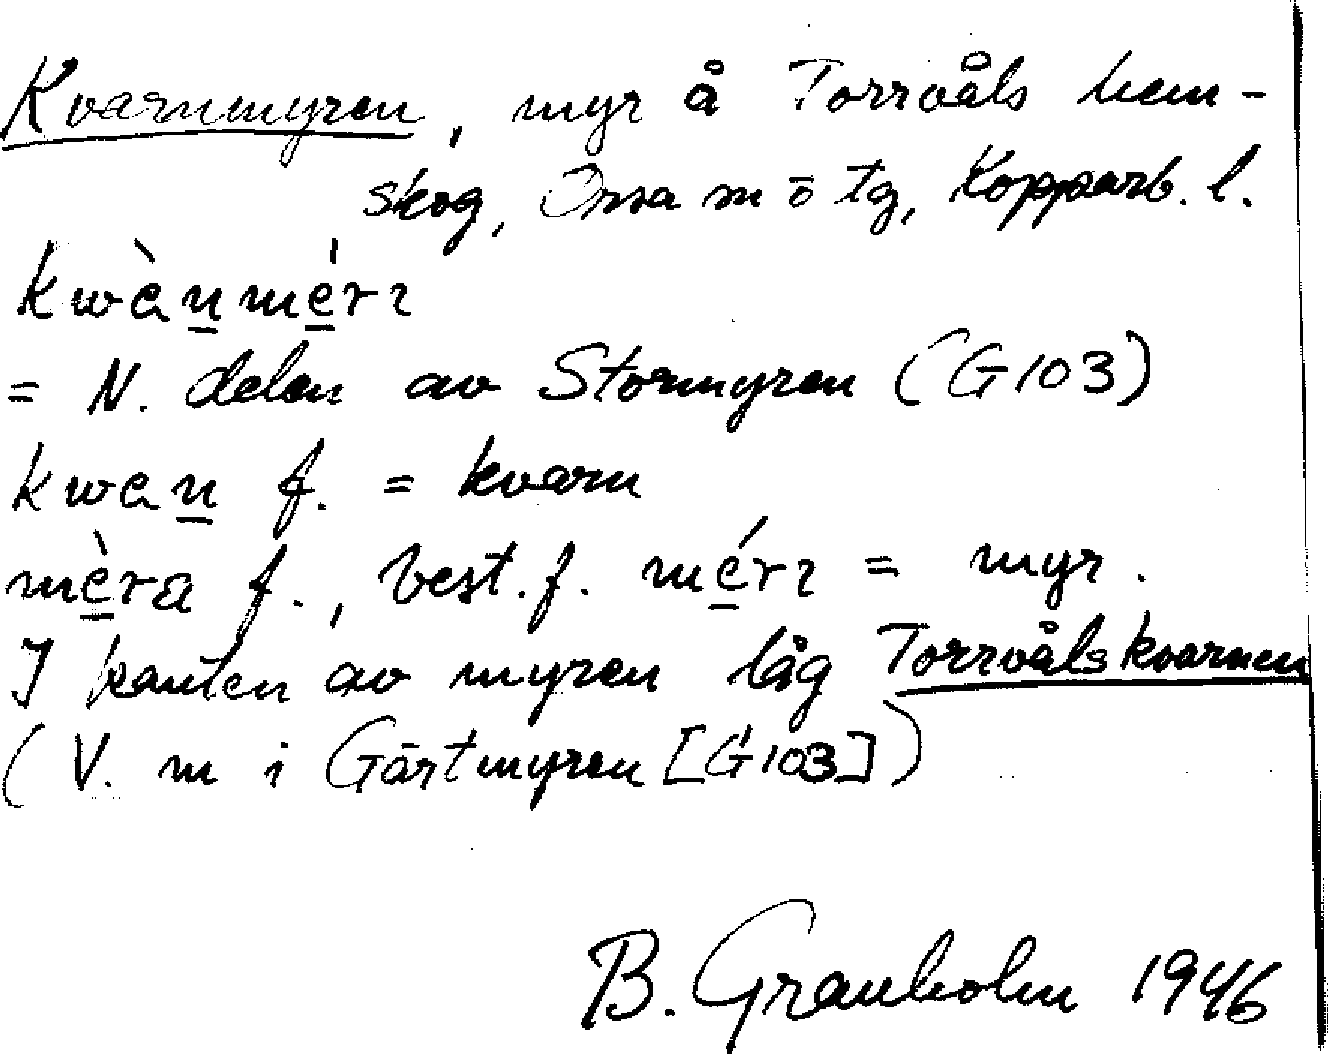 Kvarnmyren, myr å Torrvåls hem-
skog, Orsa sn o tg, Kopparb. l.
kwὲn̲mé̲rɩ
= N. delen av Stormyren (G103)
kwɛn̲ f. = kvarn
mè̲ra f., best. f. mé̲rɩ = myr.
I kanten av myren låg Torrvålskvarnen
(V. m i Gärtmyren [G103])
B. Granholm 1946